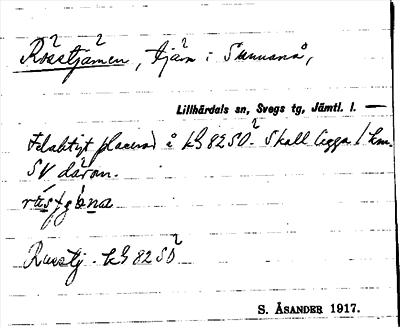 Rösstjärnen, tjärn i Sunnanå,
Lillhärdals sn, Svegs tg, Jämtl. l. —
Felaktigt placerad å kbl 82 SO. Skall ligga 1 km.
SV därom.
Russtj. kbl 82 SO
S. ÅSANDER 1917.